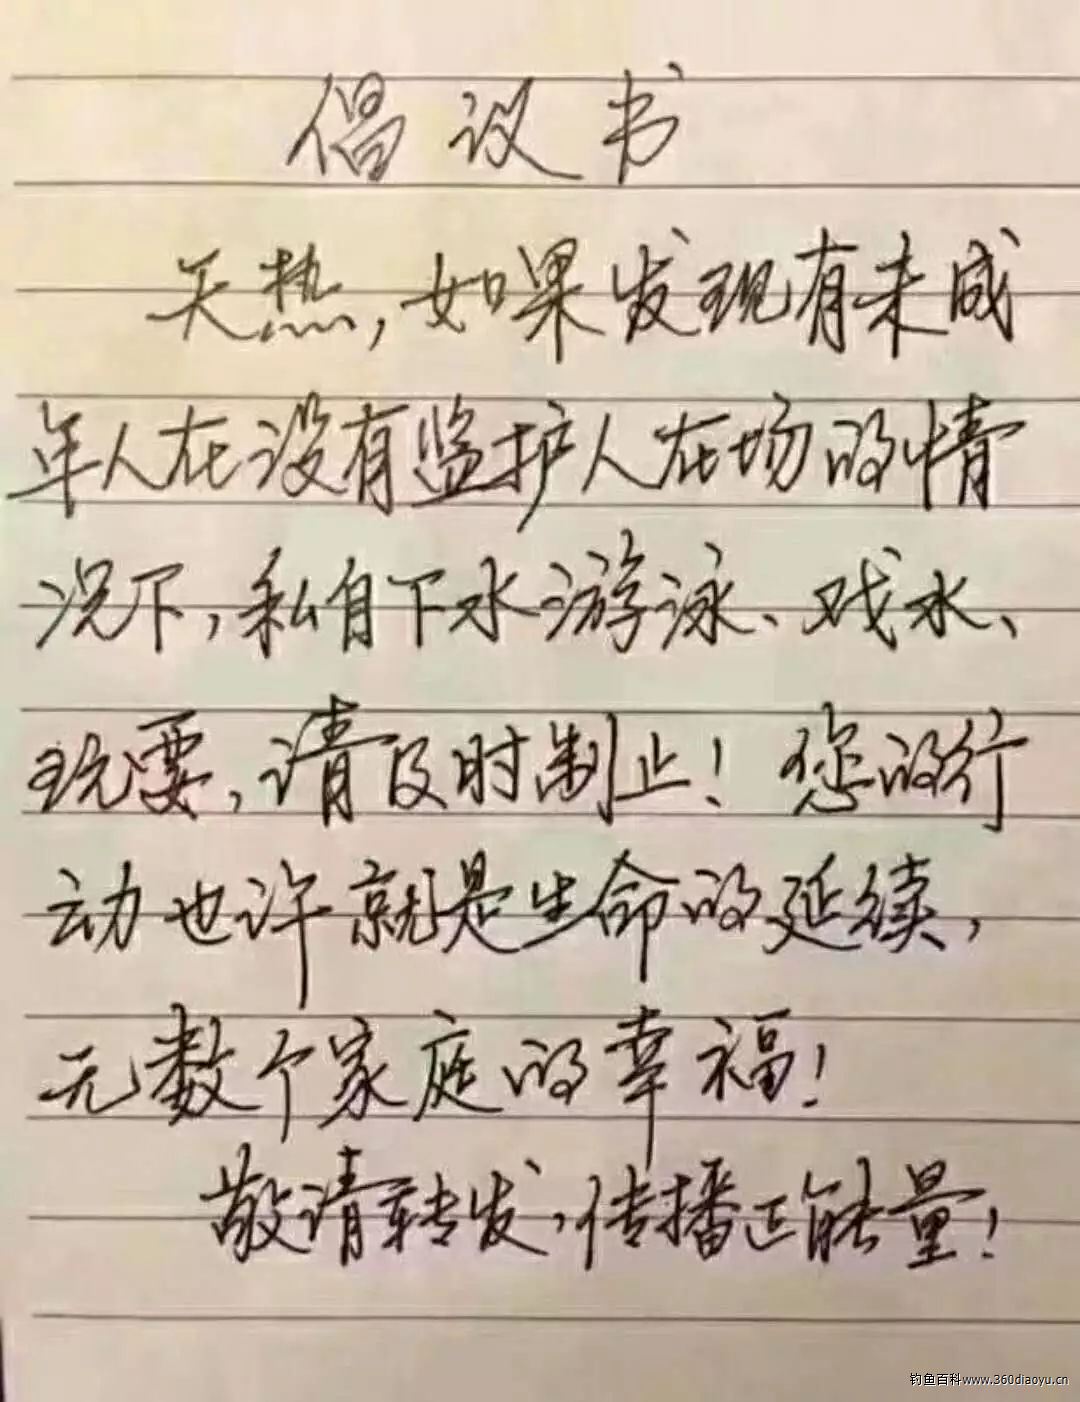 倡议书
天热,如果发现有未成
年人在没有监护人在场的情
况下,私自下水游泳、戏水、
玩耍,请及时制止!您的行
动也许就是生命的延续,
无数个家庭的幸福!
敬请转发,传播正能量!
钓鱼百科www.360diaoyu.cn